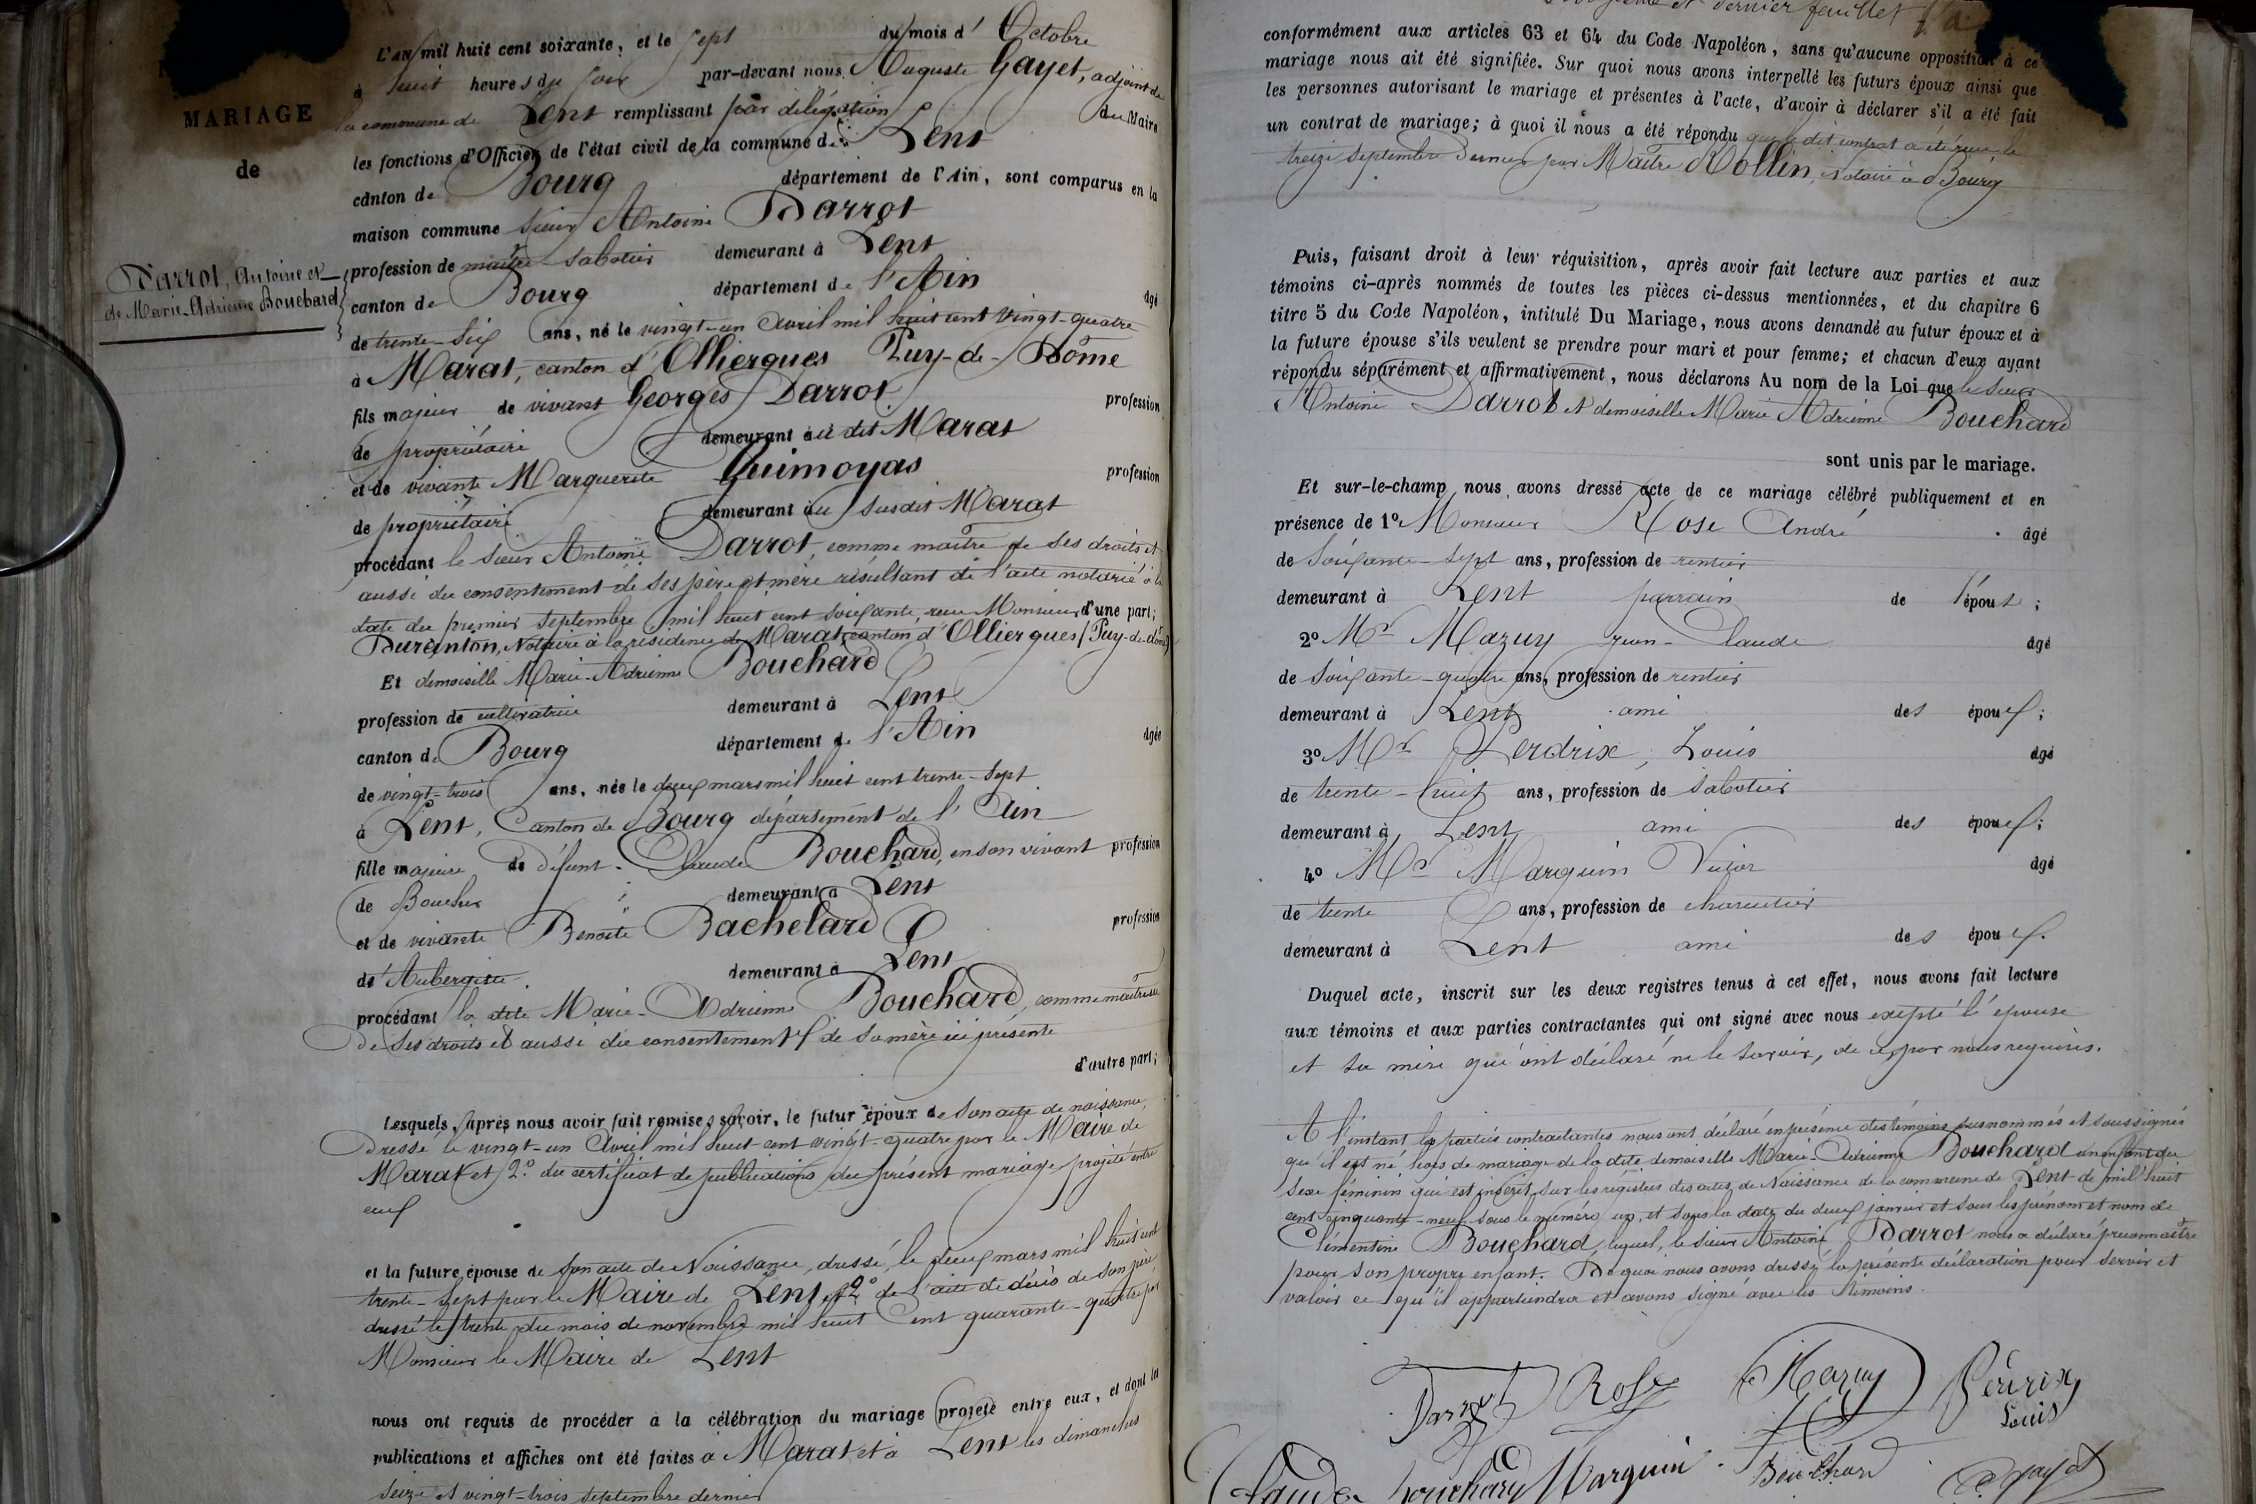 MARIAGE
de
Darrot, Antoine et
de Marie-Adrienne Bouchard
L'an mil huit cent soixante, et le sept du mois d'Octobre
à huit heures du soir par-devant nous Auguste Gayet, adjoint de
la commune de Lent remplissant par délégation du Maire
les fonctions d'Officier de l'état civil de la commune de Lent
canton de Bourg département de l'Ain, sont comparus en la
maison commune sieur Antoine Darrot
profession de maître sabotier demeurant à Lent
canton de Bourg département de l'Ain âgé
de trente-six ans, né le vingt-un avril mil huit cent vingt-quatre
à Marat, canton d'Olliergues Puy-de-Dôme
fils majeur de vivant Georges Darrot profession
de propriétaire demeurant au dit Marat
et de vivante Marguerite Guimoyas profession
de propriétaire demeurant au susdit Marat
procédant le sieur Antoine Darrot, comme maître de ses droits et
aussi du consentement de ses père et mère résultant de l'acte notarié à la
date du premier septembre mil huit cent soixante, reçu Monsieur d'une part;
Duranton, Notaire à la résidence de Marat canton d'Olliergues (Puy-de-Dôme)
Et demoiselle Marie-Adrienne Bouchard
profession de cultivatrice demeurant à Lent
canton de Bourg département de l'Ain âgée
de vingt-trois ans, née le deux mars mil huit cent trente-sept
à Lent, Canton de Bourg département de l'Ain
fille majeure de défunt Claude Bouchard, en son vivant profession
de Boucher demeurant à Lent
et de vivante Benoîte Bachelard profession
d'Aubergiste demeurant à Lent
procédant la dite Marie-Adrienne Bouchard, comme maîtresse
de ses droits et aussi du consentement de sa mère ici présente
d'autre part;
Lesquels, après nous avoir fait remise, savoir, le futur époux de son acte de naissance,
dressé le vingt-un Avril mil huit cent vingt-quatre par le Maire de
Marat et 2° du certificat de publications du présent mariage projeté entre
eux
et la future épouse de son acte de Naissance, dressé, le deux mars mil huit cent
trente-sept par le Maire de Lent et 2° de l'acte de décès de son père,
dressé le trente du mois de novembre mil huit cent quarante-quatre par
Monsieur le Maire de Lent
nous ont requis de procéder à la célébration du mariage projeté entre eux, et dont les
publications et affiches ont été faites à Marat et à Lent les dimanches
seize et vingt-trois septembre dernier
et dernier feuillet
conformément aux articles 63 et 64 du Code Napoléon, sans qu'aucune opposition à ce
mariage nous ait été signifiée. Sur quoi nous avons interpellé les futurs époux ainsi que
les personnes autorisant le mariage et présentes à l'acte, d'avoir à déclarer s'il a été fait
un contrat de mariage; à quoi il nous a été répondu que le dit contrat a été reçu le
treize septembre dernier par Maître Rollin, notaire à Bourg
Puis, faisant droit à leur réquisition, après avoir fait lecture aux parties et aux
témoins ci-après nommés de toutes les pièces ci-dessus mentionnées, et du chapitre 6
titre 5 du Code Napoléon, intitulé Du Mariage, nous avons demandé au futur époux et à
la future épouse s'ils veulent se prendre pour mari et pour femme; et chacun d'eux ayant
répondu séparément et affirmativement, nous déclarons Au nom de la Loi que le sieur
Antoine Darrot et demoiselle Marie Adrienne Bouchard
sont unis par le mariage.
Et sur-le-champ nous avons dressé acte de ce mariage célébré publiquement et en
présence de 1° Monsieur Rose André âgé
de soixante-sept ans, profession de rentier
demeurant à Lent parrain de l'épous ;
2° Mr Mazuy Jean-Claude âgé
de soixante-quatre ans, profession de rentier
demeurant à Lent ami des époux ;
3° Mr Perdrix, Louis âgé
de trente-huit ans, profession de sabotier
demeurant à Lent ami des époux ;
4° Mr Marguin Victor âgé
de trente ans, profession de charcutier
demeurant à Lent ami des époux.
Duquel acte, inscrit sur les deux registres tenus à cet effet, nous avons fait lecture
aux témoins et aux parties contractantes qui ont signé avec nous excepté l'épouse
et sa mère qui ont déclaré ne le savoir, de ce par nous requises.
A l'instant les parties contractantes nous ont déclaré en présence des témoins susnommés et soussignés
qu'il est né hors de mariage de la dite demoiselle Marie-Adrienne Bouchard un enfant du
sexe féminin qui est inscrit sur les registres des actes de Naissance de la commune de Lent de mil huit
cent cinquante-neuf sous le numéro un, et sous la date du deux janvier et sous les prénom et nom de
Clémentine Bouchard, lequel, le sieur Antoine Darrot nous a déclaré reconnaître
pour son propre enfant. De quoi nous avons dressé la présente déclaration pour servir et
valoir ce qu'il appartiendra et avons signé avec les témoins.
Darrot Rose Mazuy Péririx
Louis
Claude Bouchard Marguin Bouchard A Gayet